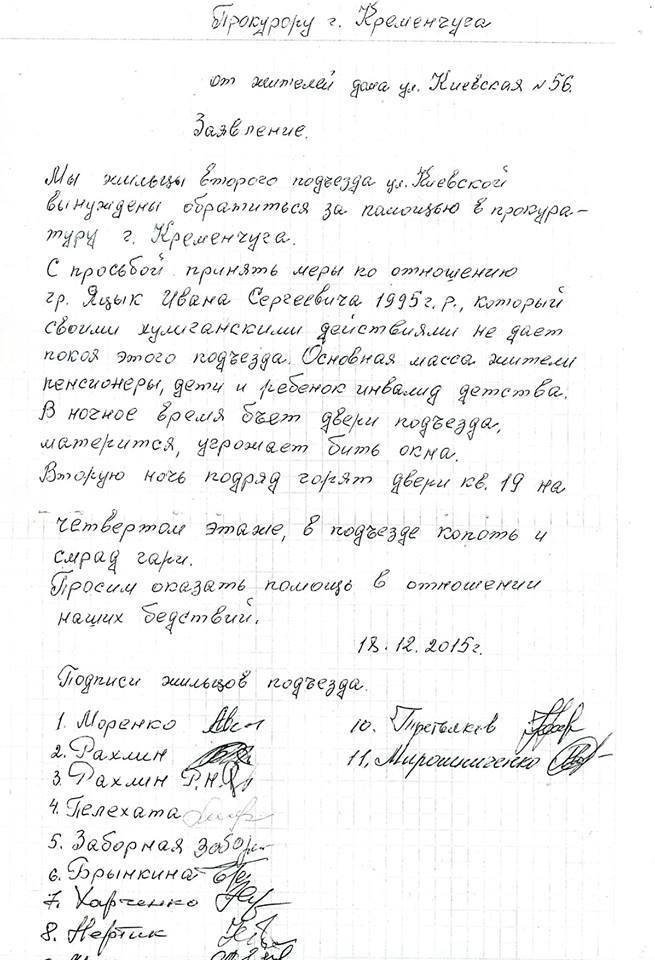 Прокурору г. Кременчуга
от жителей дома ул. Киевская №56.
Заявление.
Мы жильцы второго подъезда ул. Киевской
вынуждены обратиться за помощью в прокура-
туру г. Кременчуга.
С просьбой принять меры по отношению
гр. Яцык Ивана Сергеевича 1995г.р., который
своими хулиганскими действиями не дает
покоя этого подъезда. Основная масса жители
пенсионеры, дети и ребенок инвалид детства.
В ночное время бьет двери подъезда,
матерится, угрожает бить окна.
Вторую ночь подряд горят двери кв. 19 на
четвертом этаже, в подъезде копоть и
смрад гари.
Просим оказать помощь в отношении
наших бедствий.
18.12.2015г.
Подписи жильцов подъезда.
1. Моренко
2. Рахлин
3. Рахлин Р.Н.
4. Пелехата
5. Заборная
6. Брынкина
7. Харченко
8. Нертик
10. Третьяков
11. Мирошниченко